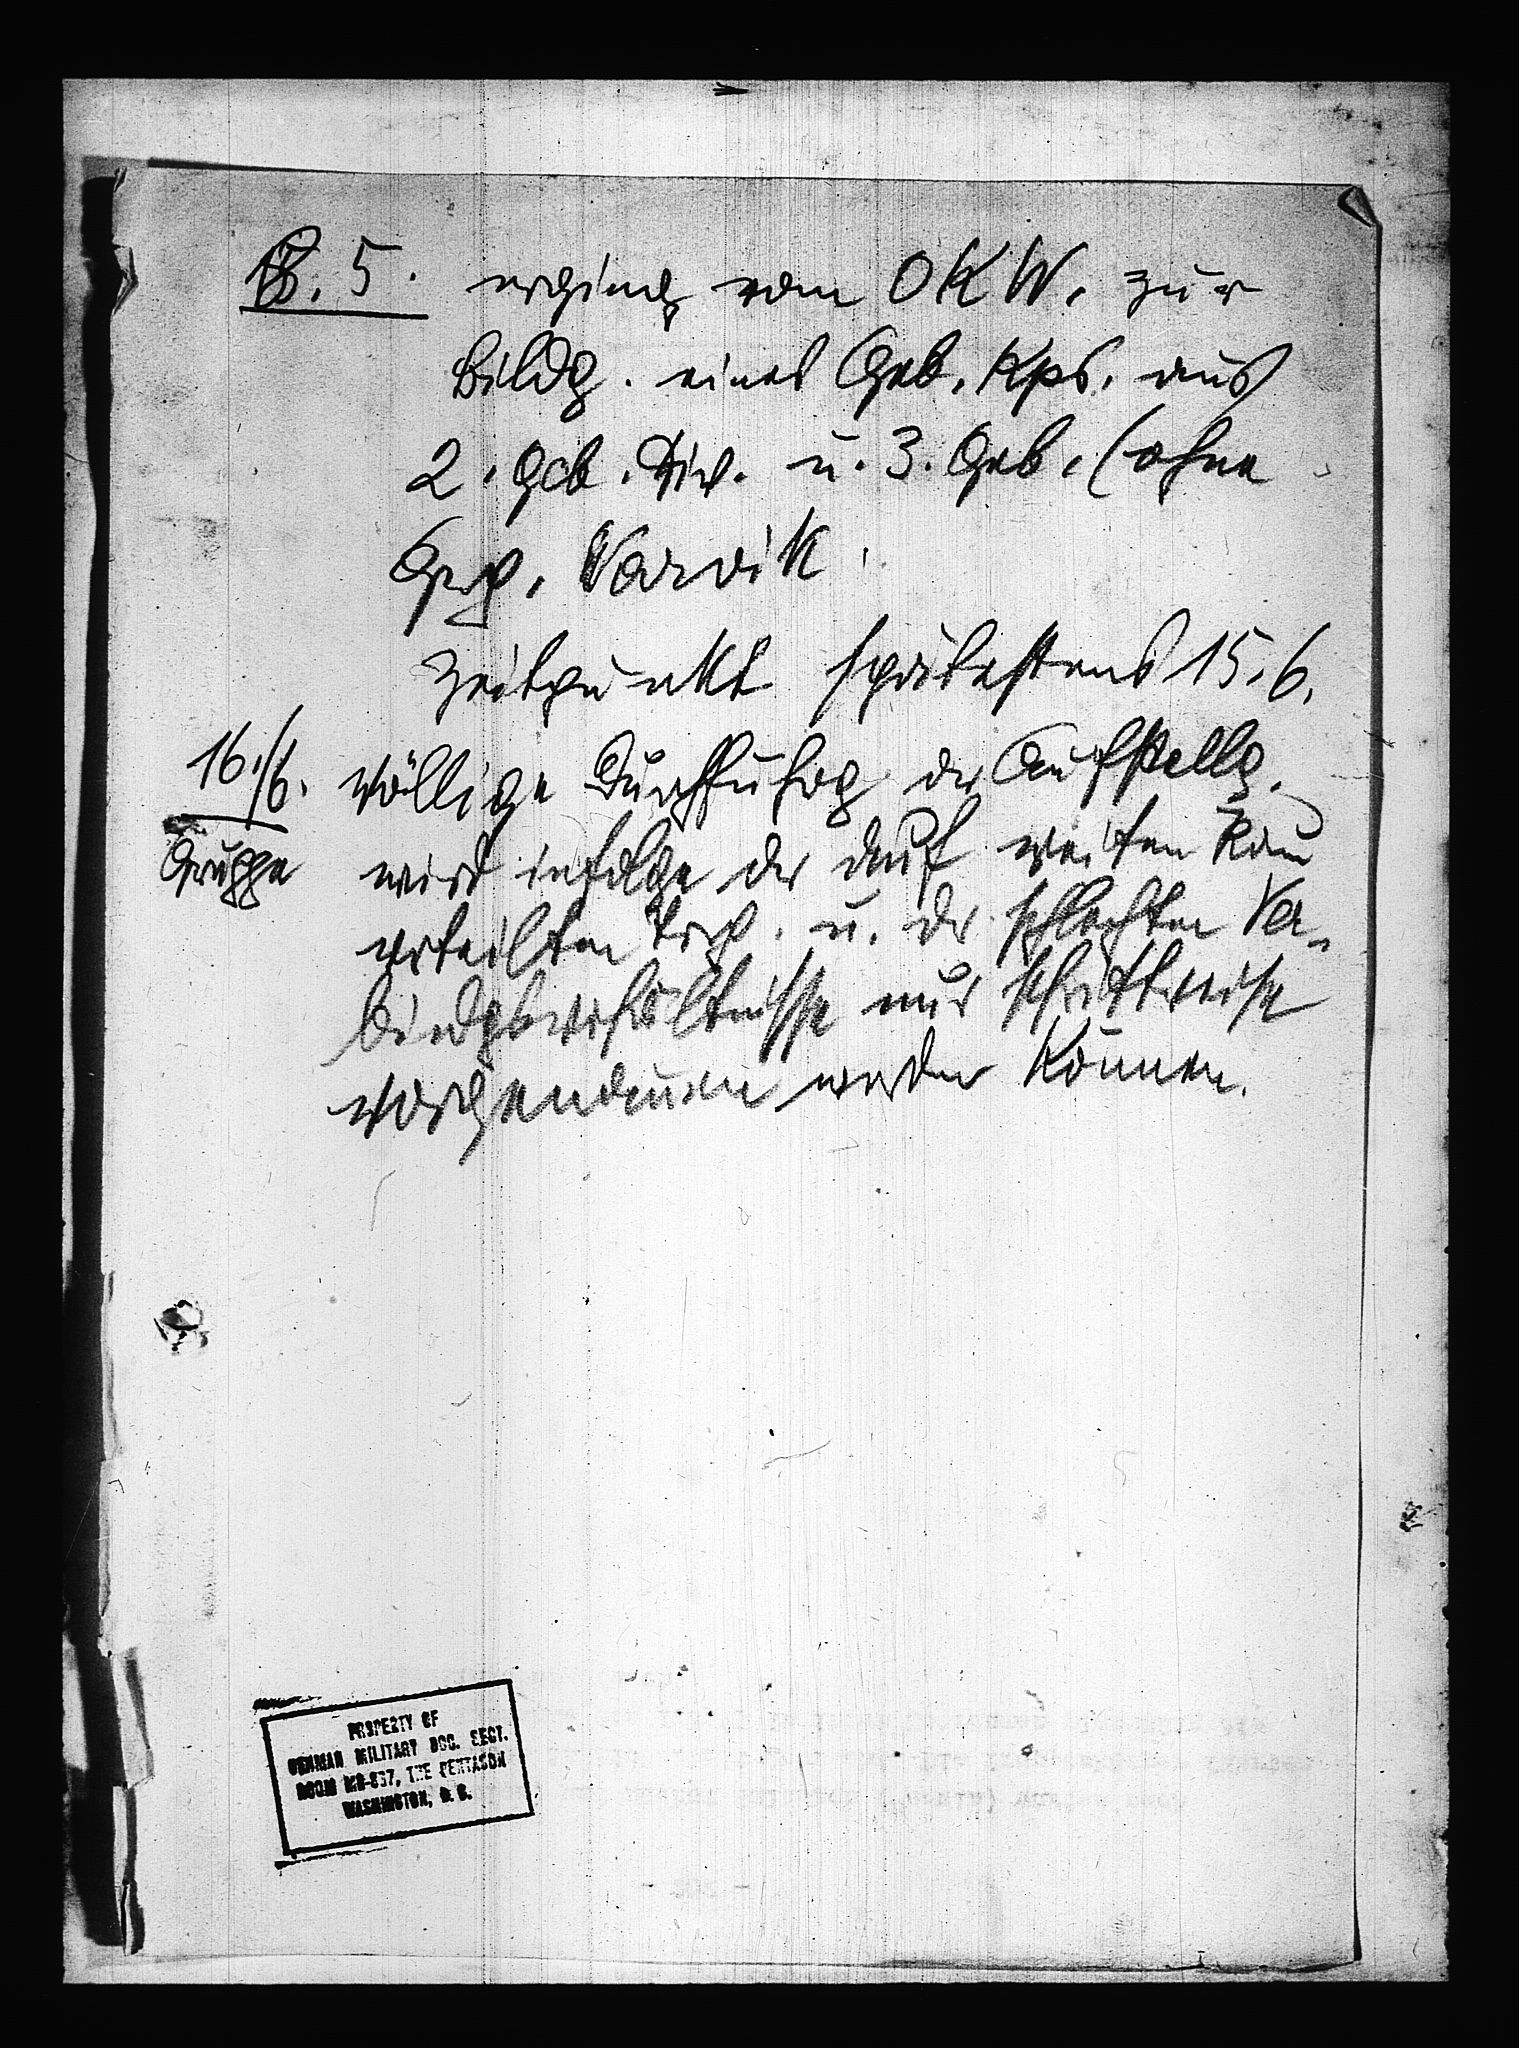 18. 5. erging vom OKW. zur
Bildg. eines Geb. Kps. aus
2. Geb. Div. u. 3. Geb. (ohne
Grp. Narvik.
Zeitpunkt spätestens 15.6.
16./6. völlige Durchführg der Aufstellg.
Gruppe wird infolge der auf weiten Raum
verteilten Trp. u. der schlechten Ver-
bindgsverhältnisse nur schrittweise
werden können.
PROPERTY OF
GERMAN MILITARY DOC. SECT.
ROOM MB-837, THE PENTAGON
WASHINGTON, D. C.